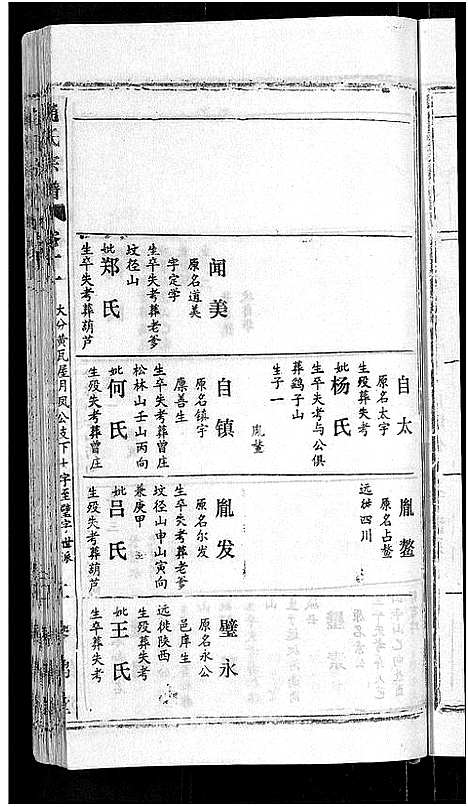 闻美
原名道美
字定学
生卒失考葬老爹
坟径山
妣郑氏
生卒失考葬葫芦
自太
原名太宇
生殁葬失考
妣杨氏
生卒失考与公俱
葬鹞子山
生子一
胤鳌
自镇
原名镇宇
廪善生
生卒失考葬曾庄
松林山壬山丙向
妣何氏
生殁失考葬曾庄
胤鳌
原名占鳌
远徙四川
胤发
原名尔发
生卒失考葬老爹
坟径山申山寅向
兼庚甲
妣吕氏
生殁失考葬葫芦
璧永
原名永公
邑庠生
远徙陕西
生殁葬失考
妣王氏
生卒葬失考
氏宗谱
大分黄瓦屋月凤公支下十字至璧字世派